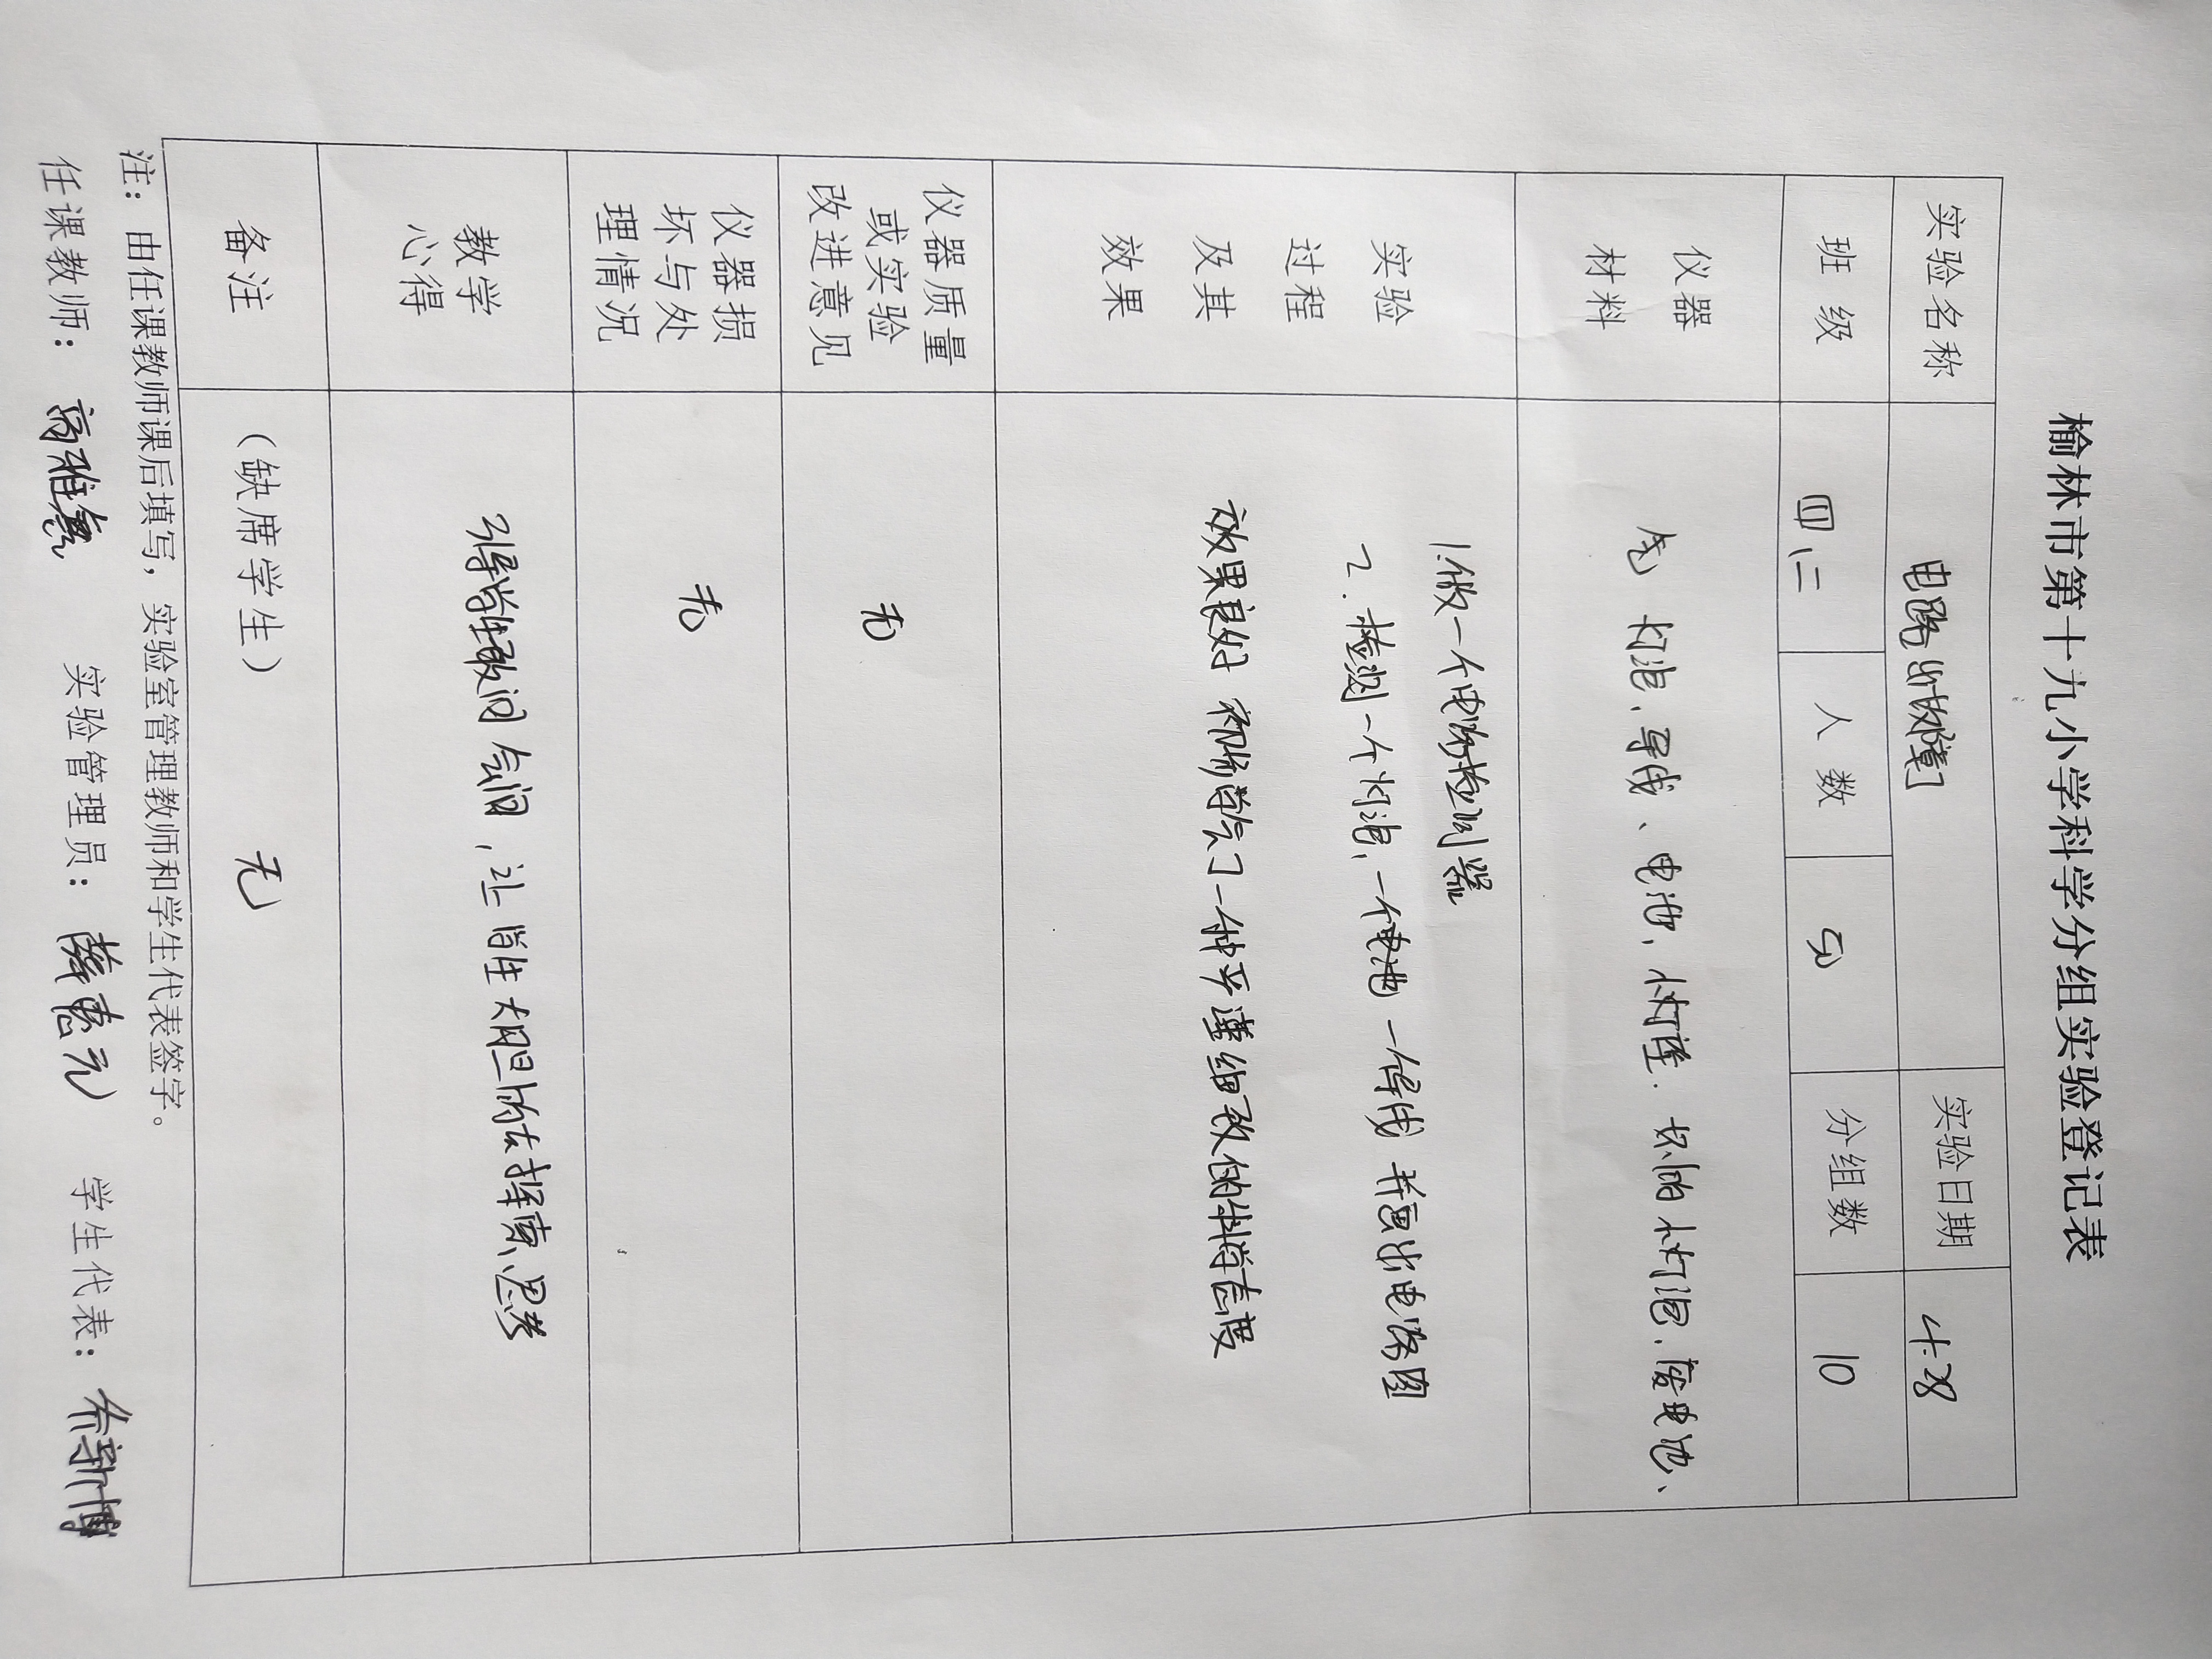 榆林市第十九小学科学分组实验登记表
实验名称 电路出故障了 实验日期 4.28
班级 四、二 人数 50 分组数 10
仪器材料 灯泡、导线、电池、小灯座、坏的小灯泡、废电池、
实验过程及其效果
1.做一个电路检测器
2.检测一个灯泡、一个电池 一个导线 并画出电路图
效果良好 初步学会了一种严谨细致的科学态度
仪器质量或实验改进意见 无
仪器损坏与处理情况 无
教学心得 引导学生敢问 会问,让学生大胆的去探索、思考
备注 (缺席学生) 无
注:由任课教师课后填写,实验室管理教师和学生代表签字。
任课教师:高雅慧 实验管理员: 学生代表: